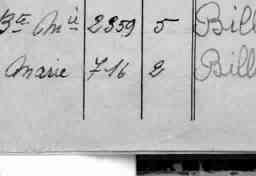 Bte Mie 2359 5 Bill
Marie 716 2 Bill